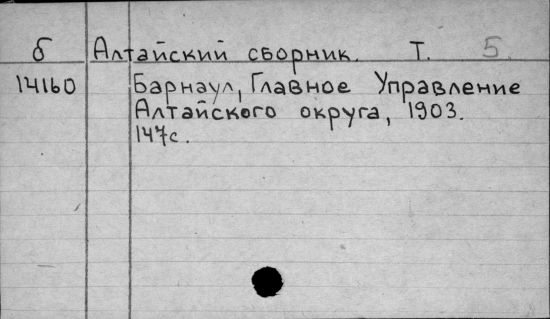 б Алтайский сборник. Т. 5.
14160 Барнаул, Главное Управление
Алтайского округа, 1903.
147с.